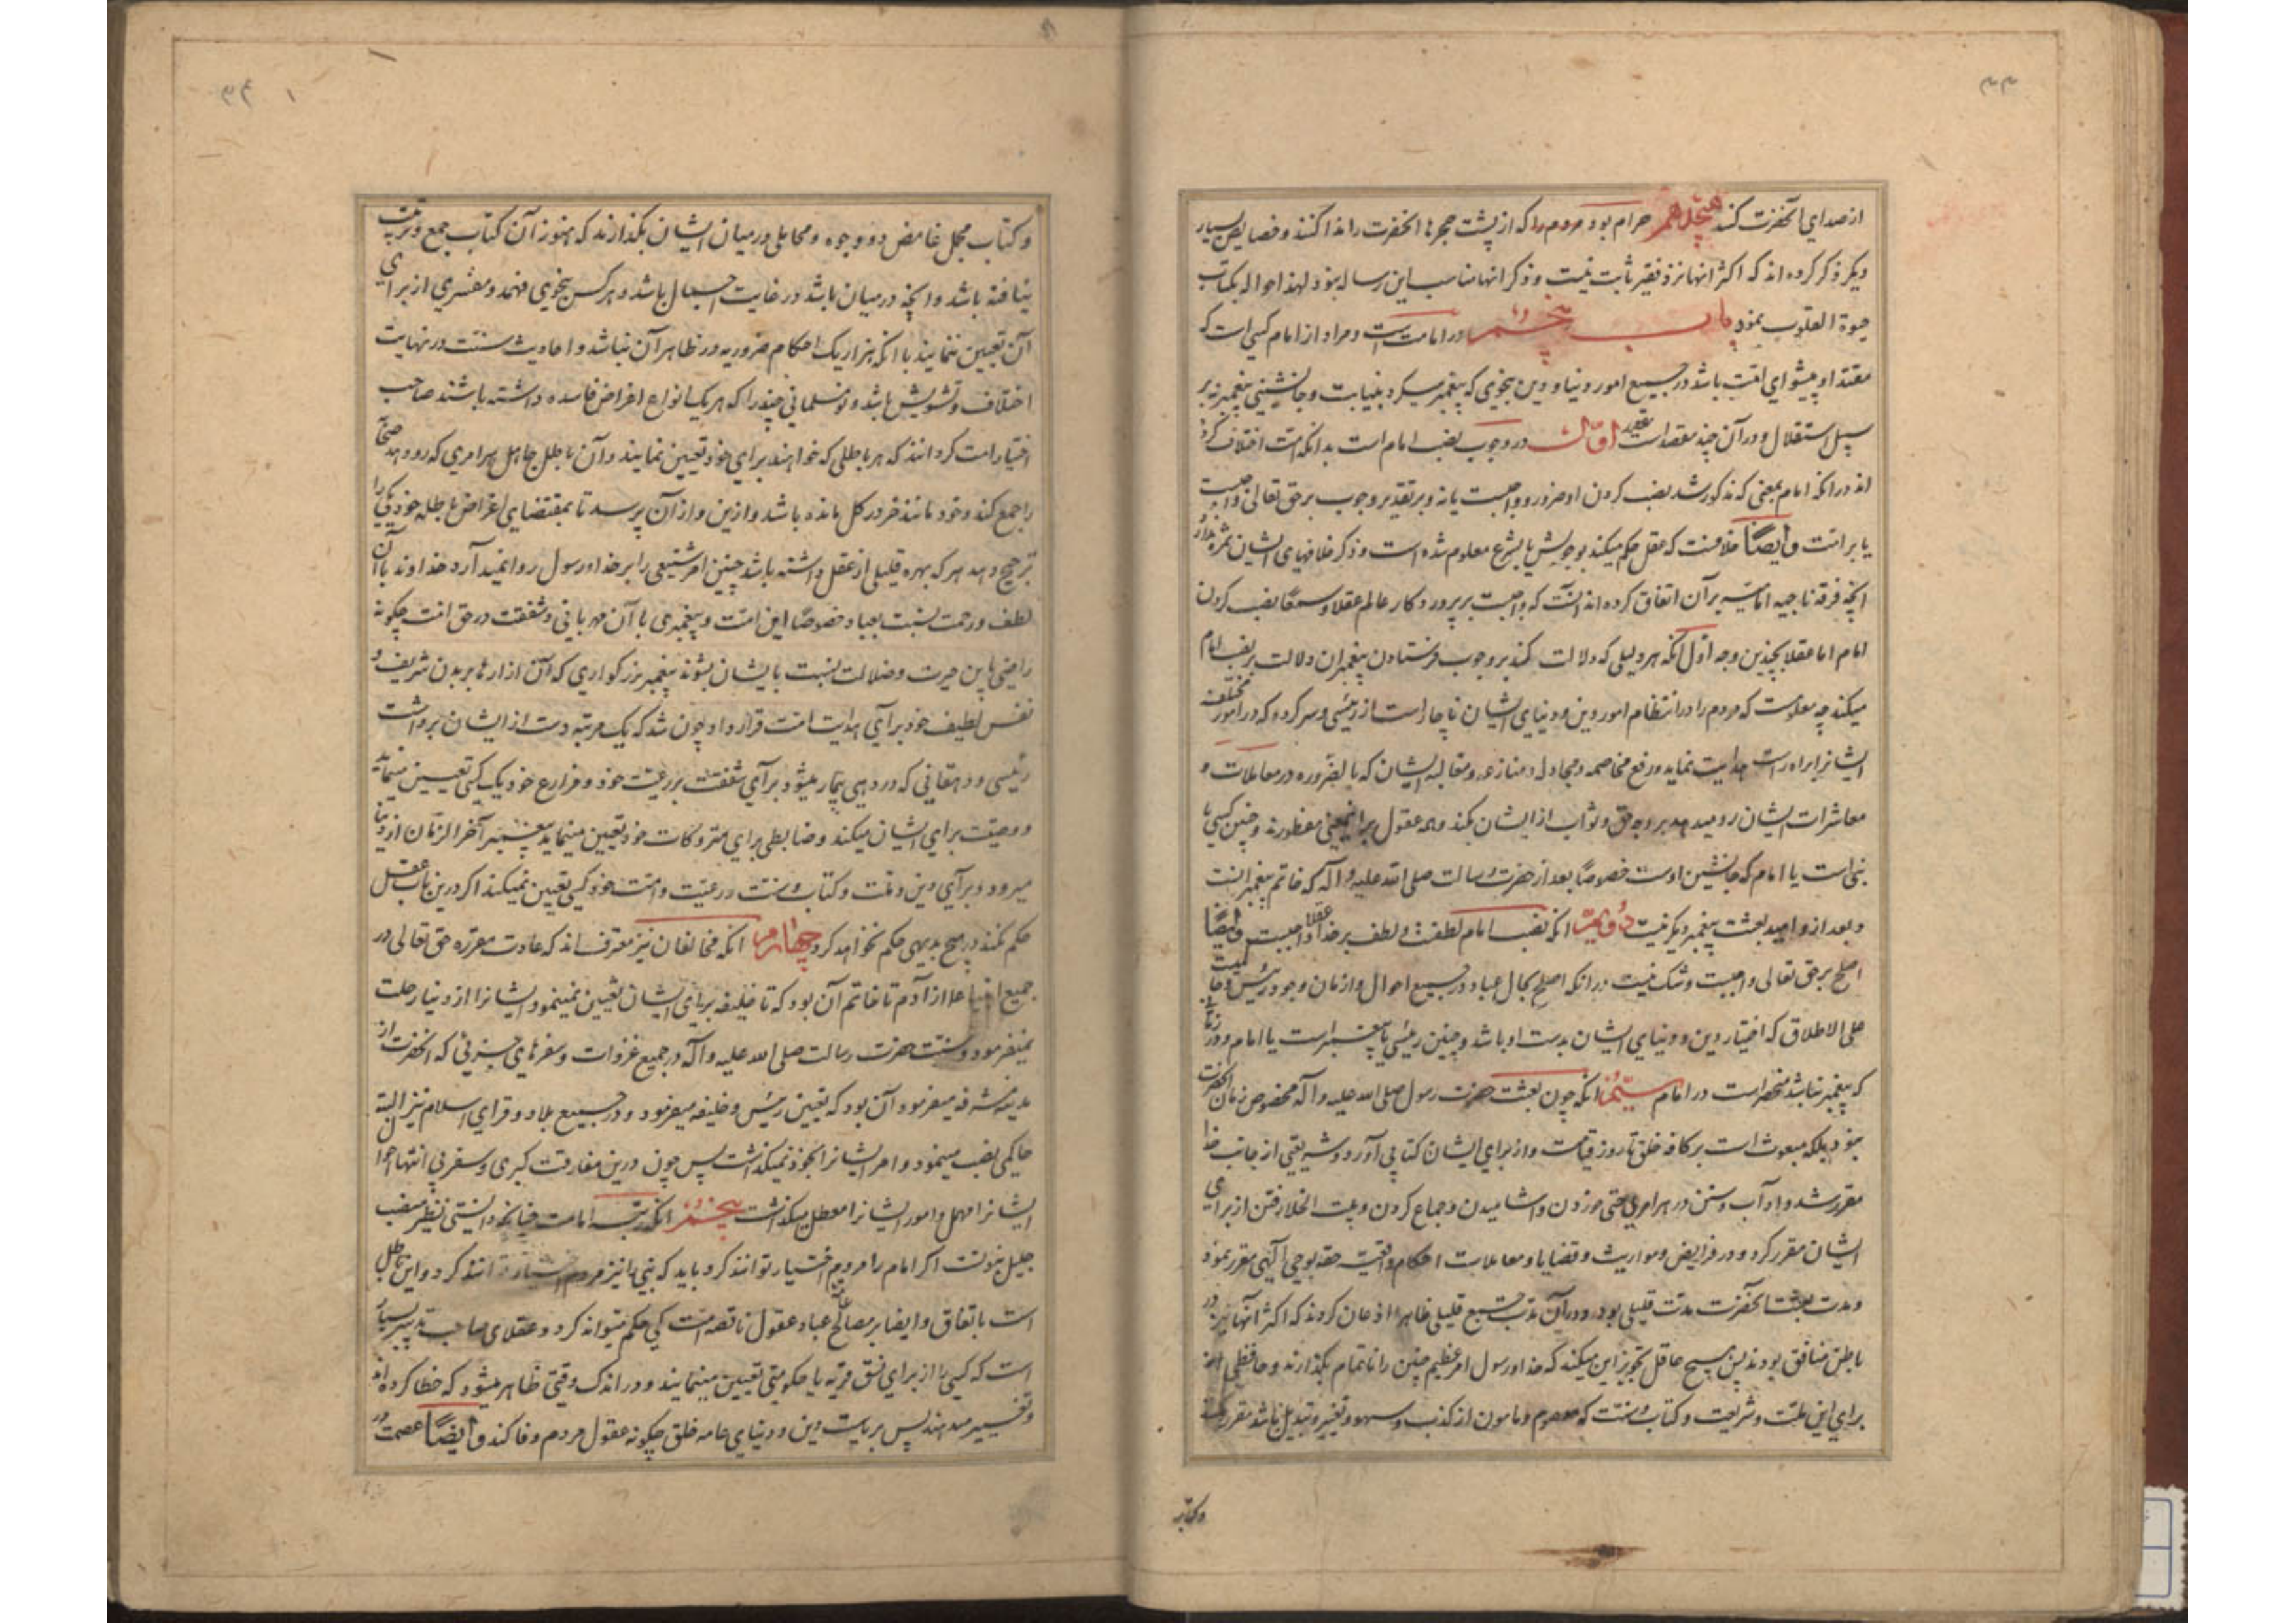 ۳۳
از صدای آنحضرت کند هیجدهم حرام بود مردم را که از پشت حجرها آنحضرت را ندا کنند و خصایص بسیار
دیگر ذکر کرده اند که اکثر آنها نزد فقیر ثابت نیست و ذکر آنها مناسب این رساله نبود لهذا حواله بکتاب
حیوة القلوب نمود باب پنجم در امامت است و مراد از امام کسی است که
مقتدا و پیشوای امت باشد در جمیع امور دنیا و دین بنحوی که پیغمبر میکرد بنیابت و جانشینی پیغمبر نه بر
سبیل استقلال و در آن چند مقصد است مقصد اول در وجوب نصب امام است بدانکه امت اختلاف کرده
اند در آنکه امام بمعنی که مذکور شد نصب کردن او ضرور و واجبست یا نه و بر تقدیر وجوب بر حق تعالی واجبست
یا بر امت و ایضاً خلافست که عقل حکم میکند بوجوبش یا بشرع معلوم شده است و ذکر خلافهای ایشان ثمره ندارد
آنچه فرقه ناجیه امامیه بر آن اتفاق کرده اند آنست که واجبست بر پروردگار عالم عقلا و سمعا نصب کردن
امام اما عقلا بچندین وجه اول آنکه هر دلیلی که دلالت کند بر وجوب فرستادن پیغمبران دلالت بر نصب امام
میکند چه معلومست که مردم را در انتظام امور دین و دنیای ایشان ناچار است از رئیسی و سرکرده که در امور مختلفه
ایشانرا براه راست هدایت نماید و رفع مخاصمه و مجادله و منازعه و مغالبه ایشان که بالضروره در معاملات و
معاشرات ایشان رو میدهد بر وجه حق و ثواب از ایشان بکند و همه عقول براینمعنی مفطورند و چنین کسی یا
نبی است یا امام که جانشین اوست خصوصاً بعد از حضرت رسالت صلی الله علیه و آله که خاتم پیغمبرانست
و بعد از او امید بعثت پیغمبر دیگر نیست دویم آنکه نصب امام لطفست و لطف بر خدا عقلا واجبست و ایضاً
اصلح بر حق تعالی واجبست و شک نیست در آنکه اصلح بحال عباد در جمیع احوال و ازمان وجود رئیس و حاکمیست
علی الاطلاق که اختیار دین و دنیای ایشان بدست او باشد و چنین رئیسی یا پیغمبر است یا امام و در زمانی
که پیغمبر نباشد منحصر است در امام سیّم آنکه چون بعثت حضرت رسول صلی الله علیه و آله مخصوص زمان آنحضرت
نبود بلکه مبعوث است بر کافه خلق تا روز قیامت و از برای ایشان کتابی آورد و شریعتی از جانب خدا
مقرر شد و آداب و سنن در هر امری حتی خوردن و آشامیدن و جماع کردن و بیت الخلا رفتن از برای
ایشان مقرر کرد و در فرایض و مواریث و قضایا و معاملات احکام واقعیت حقه بوحی آلهی مقرر نمود
و مدت بعثت آنحضرت مدت قلیلی بود و در آن مدت جمع قلیلی ظاهرا اذعان کردند که اکثر آنها نیز در
باطن منافق بودند پس هیچ عاقل تجویز این میکند که خدا و رسول امر عظیم چنین را ناتمام بگذارند و حافظی از
برای این ملت و شریعت و کتاب و سنت که معصوم و مامون از کذب و سهو و تغییر و تبدیل باشد مقرر نکنند
و کتاب
۳۴
و کتاب مجمل غامض ذو وجوه و محاملی در میان ایشان بگذارند که هنوز آن کتاب جمع و ترتیب
نیافته باشد و آنچه در میان باشد در غایت اجمال باشد و هر کس بنحوی فهمد و مفسری از برای
آن تعیین ننمایند با آنکه هزار یک احکام ضروریه در ظاهر آن نباشد و احادیث سنت در نهایت
اختلاف و تشویش باشد و نومسلمانی چند را که هر یک انواع اغراض فاسده داشته باشند صاحب
اختیار امت گردانند که هر باطلی که خواهند برای خود تعیین نمایند و آن باطل جاهل هر امری که رو دهد صحابه
را جمع کند و خود مانند خر در گل مانده باشد و ازین و از آن پرسد تا بمقتضای اغراض باطله خود یکی را
ترجیح دهد هر که بهره قلیلی از عقل داشته باشد چنین امر شنیعی را بر خدا و رسول روا نمیدارد خداوند با آن
لطف و رحمت نسبت بعباد خصوصاً این امت و پیغمبری با آن مهربانی و شفقت در حق امت چگونه
راضی باین حیرت و ضلالت نسبت بایشان بشوند پیغمبر بزرگواری که آن آزارها بر بدن شریف و
نفس لطیف خود برای هدایت امت قرار داد چون شد که یک مرتبه دست از ایشان برداشت
رئیسی و دهقانی که در دهی بیمار میشود برای شفقت بر رعیت خود و مزارع خود یک کسی تعیین مینماید
و وصیت برای ایشان میکند و ضابطی برای متروکات خود تعیین مینماید پیغمبر آخر الزمان از دنیا
میرود و برای دین و ملت و کتاب و سنت و رعیت و امت خود کسی تعیین نمیکند اگر درین باب عقل
حکم نکند در هیچ بدیهی حکم نخواهد کرد چهارم آنکه مخالفان نیز معترف اند که عادت مقرره حق تعالی در
جمیع انبیا علا از آدم تا خاتم آن بود که تا خلیفه برای ایشان تعیین نمینمود ایشانرا از دنیا رحلت
نمیفرمود و سنت حضرت رسالت صلی الله علیه و آله در جمیع غزوات و سفرهای جزئی که آنحضرت از
مدینه مشرفه میفرمود آن بود که تعیین رئیس و خلیفه میفرمود و در جمیع بلاد و قرای اسلام نیز البته
حاکمی نصب مینمود و امر ایشانرا بخود نمیگذاشت پس چون درین مفارقت کبری و سفر بی انتها احوال
ایشانرا مهمل و امور ایشانرا معطل میگذاشت پنجم آنکه رتبه امامت چنانچه دانستی نظیر منصب
جلیل نبوتست اگر امام را مردم اختیار توانند کرد باید که نبی را نیز مردم اختیار توانند کرد و این باطل
است باتفاق و ایضا بر مصالح عباد عقول ناقصه امت کی حکم میتواند کرد و عقلای صاحب تدبیر بسیار
است که کسی را از برای نسق قریه یا حکومتی تعیین مینمایند و در اندک وقتی ظاهر میشود که خطا کرده اند
و تغییر میدهند پس بریاست دین و دنیای عامه خلق چگونه عقول مردم وفا کند و ایضاً عصمت در